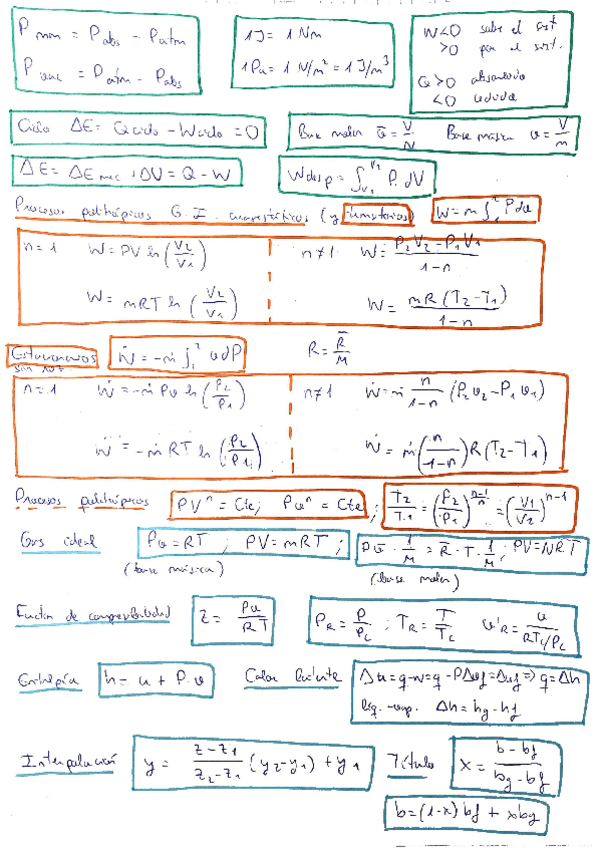 P man = Pabs - Patm
P vac = Patm - Pabs
1J = 1 Nm
1Pa = 1 N/m² = 1 J/m³
W<0 sobre el sist
>0 por el sist.
Q>0 absorbido
<0 cedido
Ciclo ΔE = Qciclo - Wciclo = 0
Base molar v̄ = V/N Base másica v = V/m
ΔE = ΔEmec + ΔU = Q - W
Wdesp = ∫_{V1}^{V2} P.dV
Procesos politrópicos G.I. (y W = m ∫_1^2 Pdv
n=1 W = PV ln (V2/V1) n≠1 W = (P2V2 - P1V1)/(1-n)
W = mRT ln (V2/V1) W = mR(T2-T1)/(1-n)
Estacionarios Ẇ = -ṁ ∫_1^2 v dP R = R̄/M
n=1 Ẇ = -ṁ Pv ln (P2/P1) n≠1 Ẇ = ṁ n/(1-n) (P2v2 - P1v1)
Ẇ = -ṁ RT ln (P2/P1) Ẇ = ṁ (n/(1-n)) R(T2-T1)
Procesos politrópicos PVⁿ = Cte; Pvⁿ = Cte ; T2/T1 = (P2/P1)^((n-1)/n) = (V1/V2)^(n-1)
Gas ideal Pv = RT ; PV = mRT ; Pv̄ · 1/M = R̄ · T · 1/M ; PV = NR̄T
(base másica) (base molar)
Factor de compresibilidad Z = Pv/RT PR = P/Pc ; TR = T/Tc v'R = v/(RTc/Pc)
Entalpía h = u + P.v Calor latente Δu = q-w = q - PΔvf = Δuf => q = Δh
líq.-vap. Δh = hg - hf
Interpolación y = (z-z1)/(z2-z1) (y2-y1) + y1 Título x = (b - bf)/(bg - bf)
b = (1-x) bf + xbg